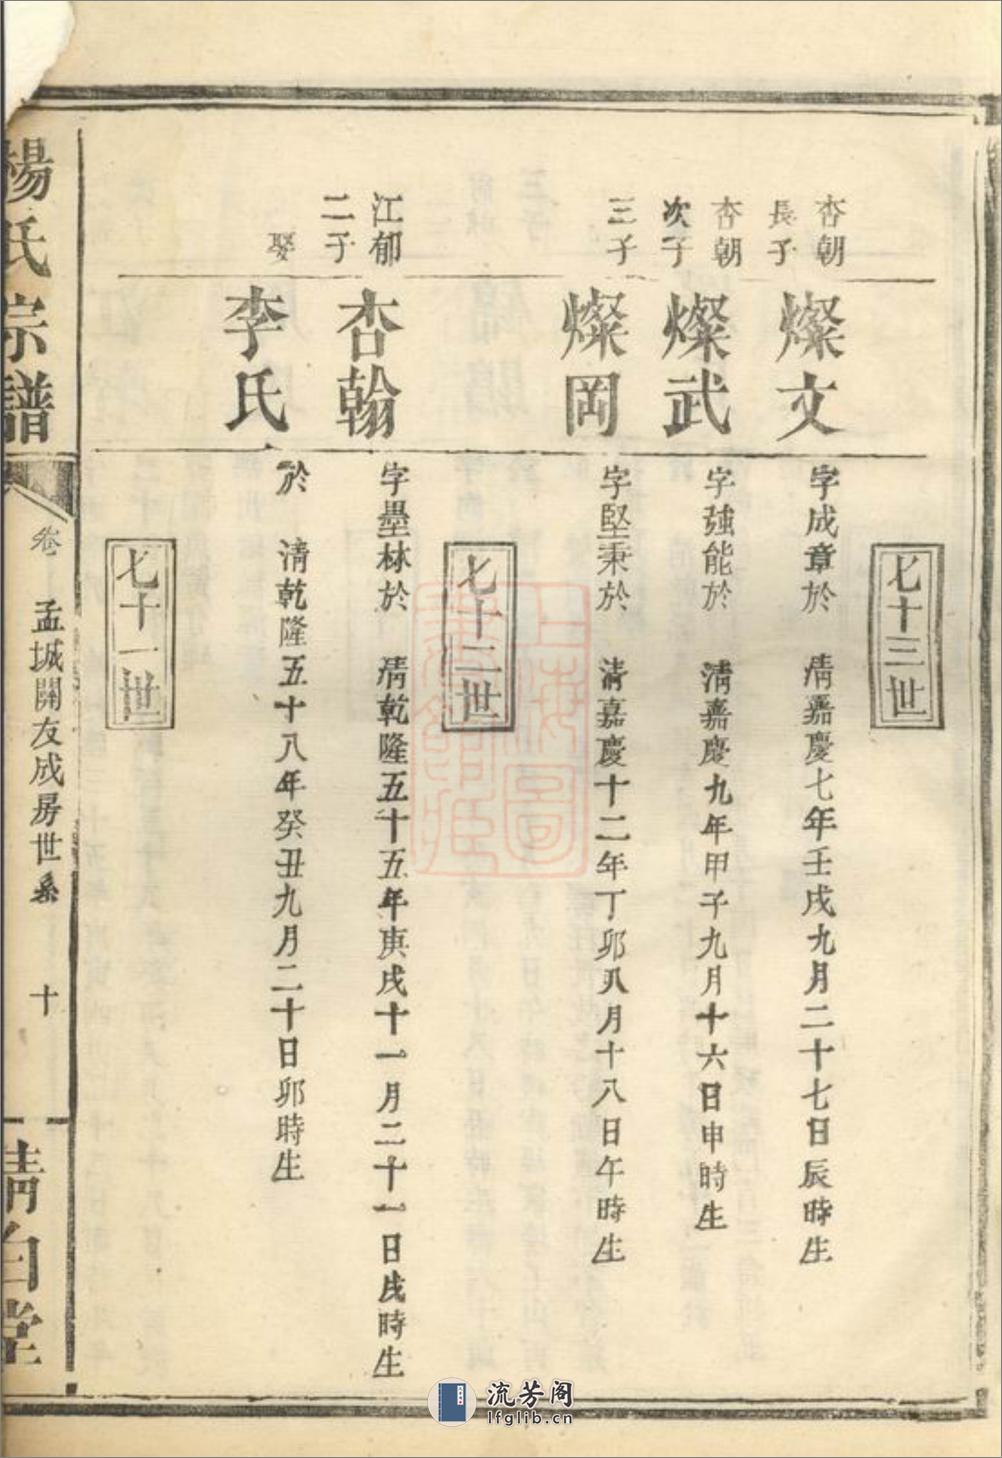 七十三世
杏朝
長子
燦文
字成章於 清嘉慶七年壬戌九月二十七日辰時生
杏朝
次子
燦武
字強能於 清嘉慶九年甲子九月十六日申時生
三子
燦岡
字堅秉於 清嘉慶十二年丁卯八月十八日午時生
七十二世
江郁
二子
杏翰
字墨林於 清乾隆五十五年庚戌十一月二十一日戌時生
娶
李氏
於 清乾隆五十八年癸丑九月二十日卯時生
七十一世
楊氏宗譜
卷 孟城關友成房世系 十
清白堂
上海圖書館藏
流芳阁
lfglib.cn